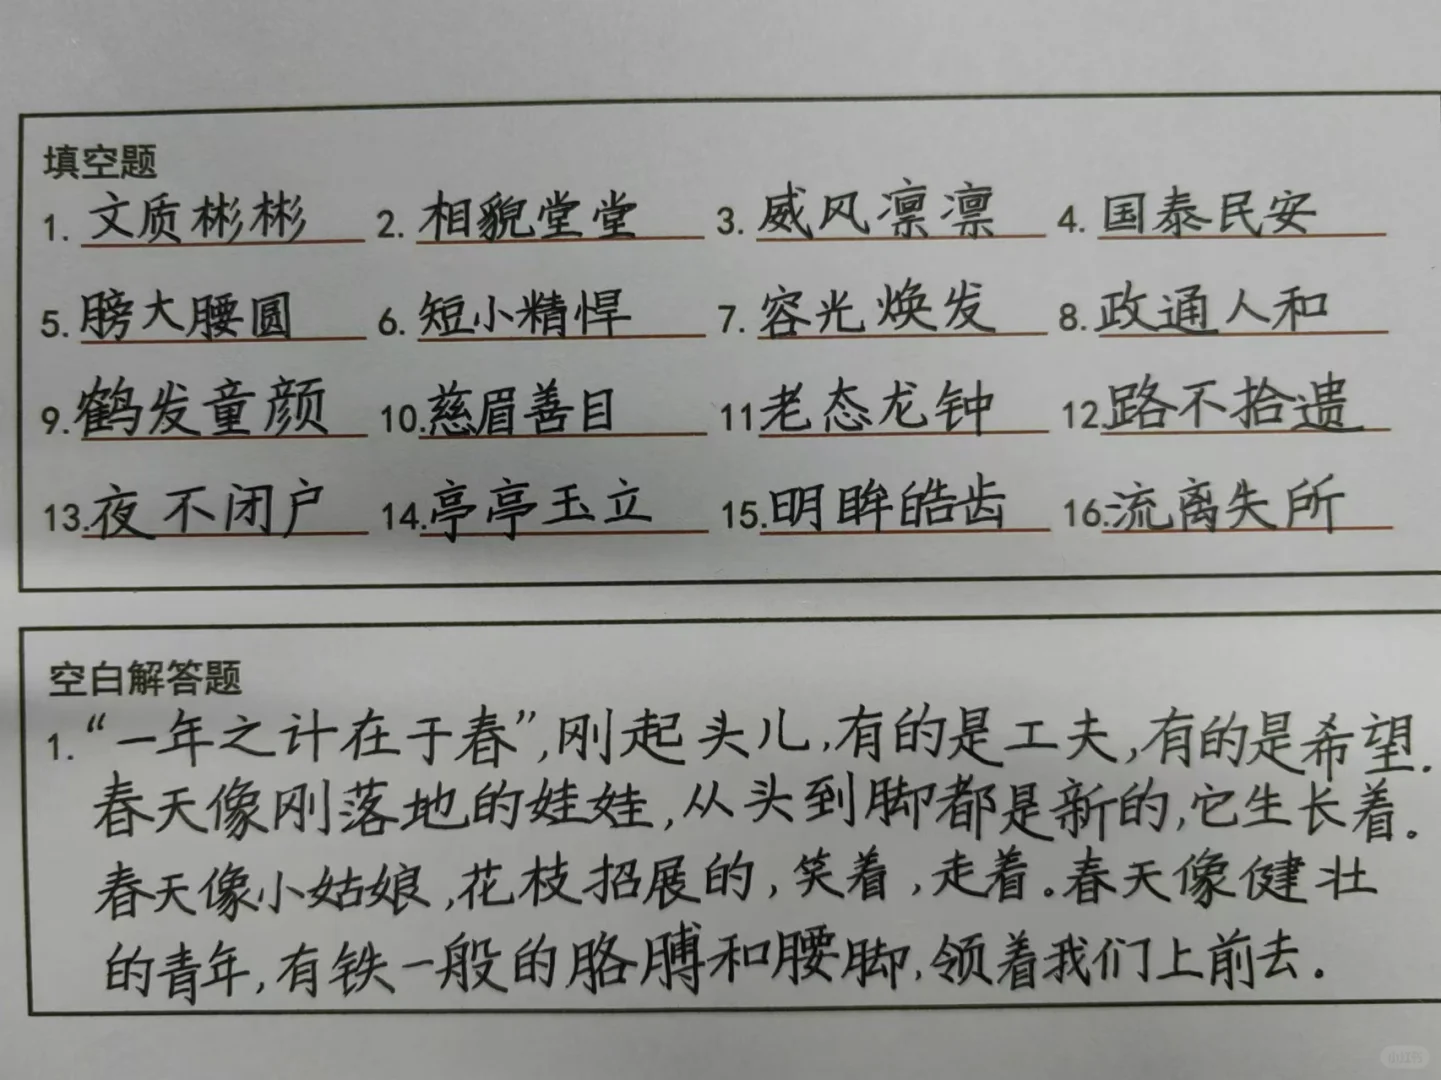 填空题
1. 文质彬彬 2. 相貌堂堂 3. 威风凛凛 4. 国泰民安
5. 膀大腰圆 6. 短小精悍 7. 容光焕发 8. 政通人和
9. 鹤发童颜 10. 慈眉善目 11 老态龙钟 12 路不拾遗
13. 夜不闭户 14. 亭亭玉立 15. 明眸皓齿 16. 流离失所
空白解答题
1. “一年之计在于春”,刚起头儿,有的是工夫,有的是希望.
春天像刚落地的娃娃,从头到脚都是新的,它生长着。
春天像小姑娘,花枝招展的,笑着,走着。春天像健壮
的青年,有铁一般的胳膊和腰脚,领着我们上前去。